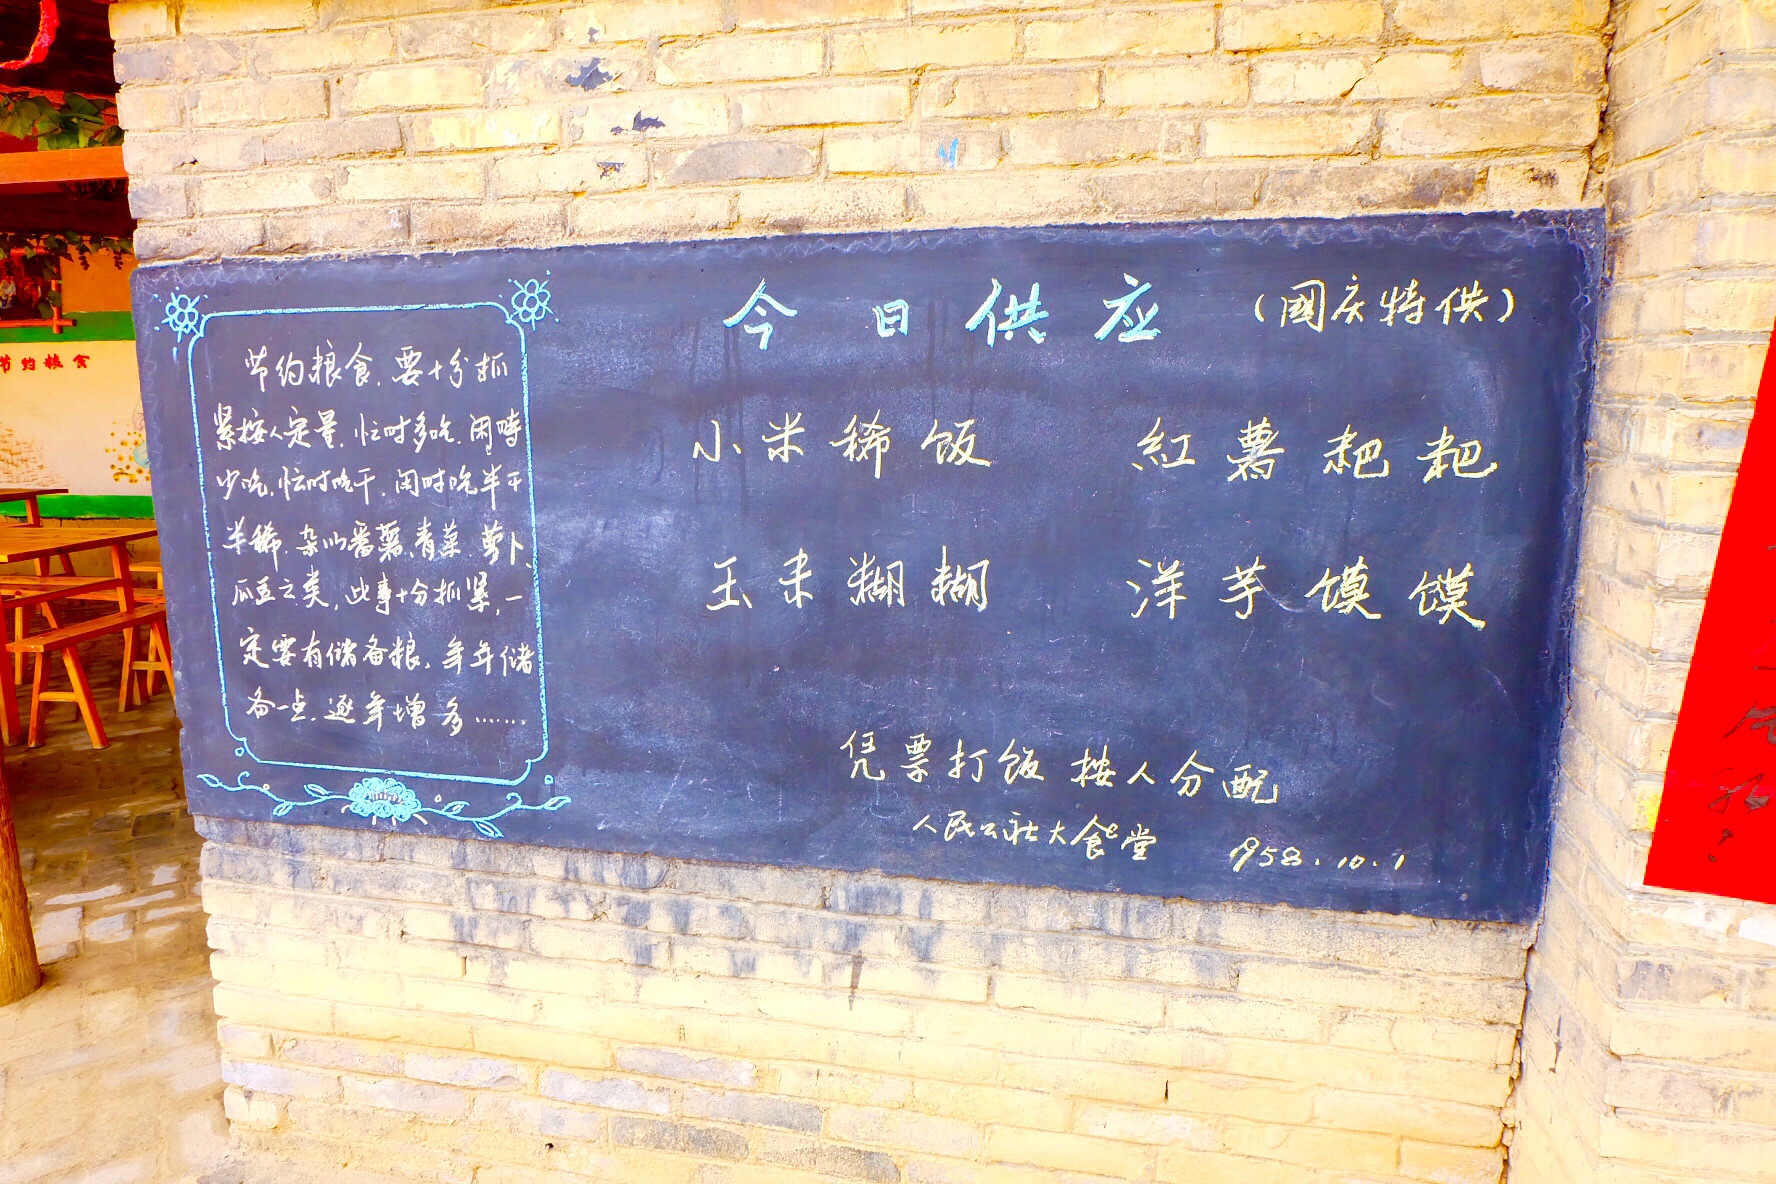 节约粮食
节约粮食,要十分抓
紧按人定量,忙时多吃,闲時
少吃,忙时吃干,闲时吃半干
半稀,杂以番薯、青菜、萝卜、
瓜豆之类,此事十分抓紧,一
定要有储备粮,年年储
备一点,逐年增多……
今日供应 (國庆特供)
小米稀饭 紅薯粑粑
玉米糊糊 洋芋馍馍
凭票打饭 按人分配
人民公社大食堂 1958.10.1